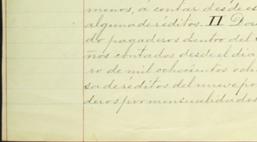 menos, á contar desde es
alguna de réditos. II Don
do pagaderos dentro del
ños contados desde el dia
ro de mil ochocientos och
sa de réditos del nueve po
deros por mensualidades